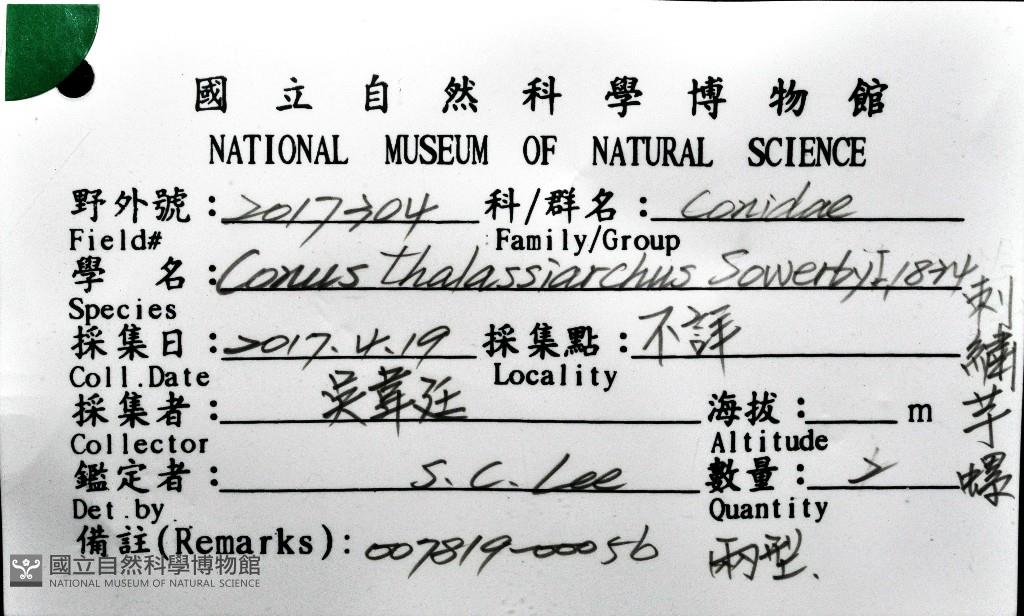 國立自然科學博物館
NATIONAL MUSEUM OF NATURAL SCIENCE
野外號：2017-304 科/群名：Conidae
Field# Family/Group
學 名：Conus thalassiarchus Sowerby I, 1834
Species
採集日：2017.4.19 採集點：不詳
Coll.Date Locality
採集者：吳韋廷 海拔：m
Collector Altitude
鑑定者：S.C. Lee 數量：2
Det.by Quantity
備註(Remarks)：007819-00056 兩型.
刺繡芋螺
國立自然科學博物館
NATIONAL MUSEUM OF NATURAL SCIENCE